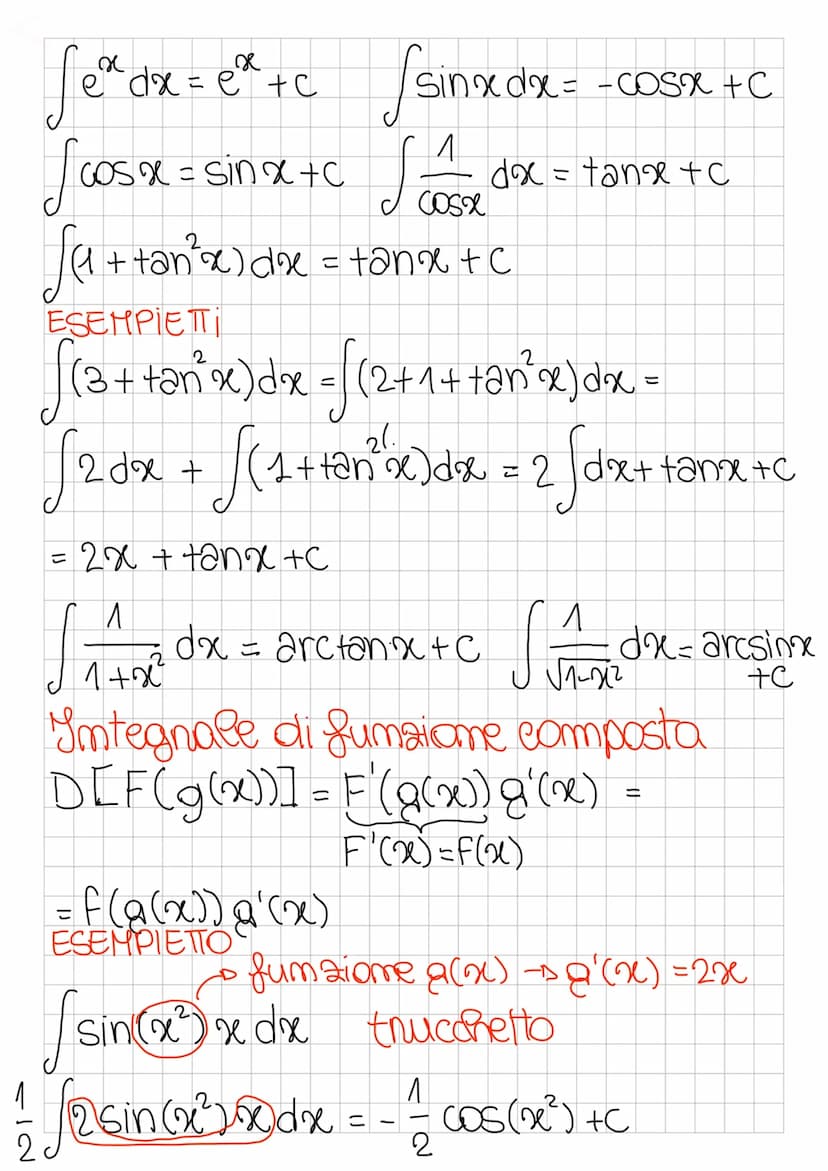 ∫eˣdx = eˣ + c ∫sinxdx = -cosx + c
∫cosx = sinx + c ∫1/cosx dx = tanx + c
∫(1 + tan²x)dx = tanx + c
ESEMPIETTi
∫(3 + tan²x)dx = ∫(2+1+tan²x)dx =
∫2dx + ∫(1+tan²x)dx = 2∫dx + tanx + c
= 2x + tanx + c
∫1/(1+x²) dx = arctanx + c ∫1/√(1-x²) dx = arcsinx + c
Integrale di funzione composta
D[F(g(x))] = F'(g(x))g'(x) =
F'(x) = f(x)
= f(g(x))g'(x)
ESEMPIETTO
→ funzione g(x) → g'(x) = 2x
∫sin(x²)xdx trucchetto
1/2 ∫2sin(x²)xdx = -1/2 cos(x²) + c